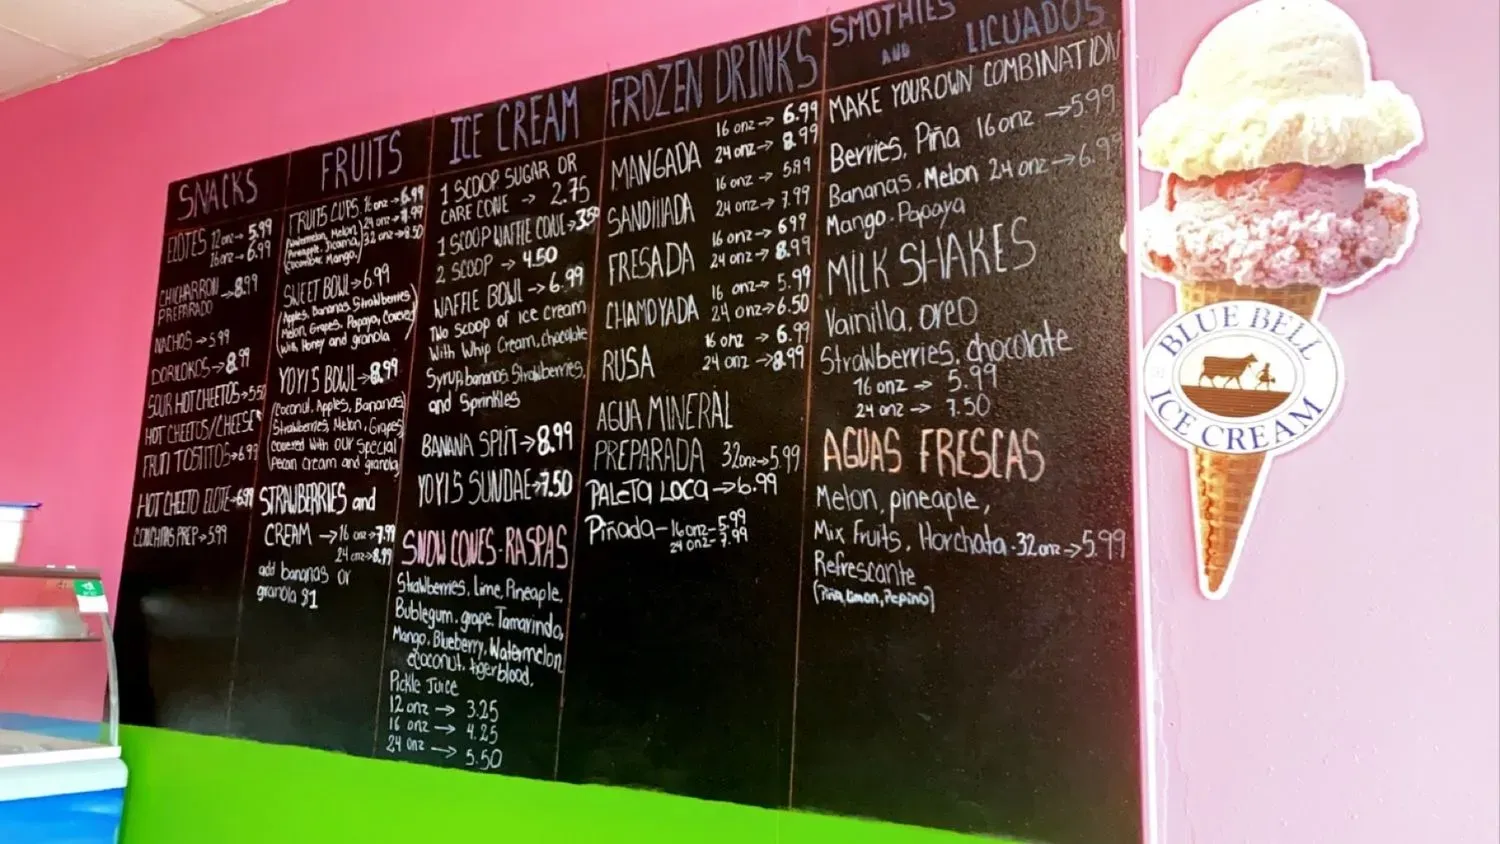 SNACKS
ELOTES 12onz→ 5.99
16onz→ 6.99
CHICHARRON→8.99
PREPARADO
NACHOS→5.99
DORILOKOS→8.99
SOUR HOT CHEETOS→5.50
HOT CHEETOS/CHEESE
FRUTI TOSTITOS→6.99
HOT CHEETO ELOTE→6.99
CONCHITAS PREP→5.99
FRUITS
FRUITS CUPS 16onz→6.99
(Watermelon, Melon, 24onz→8.99
Pineapple, Jicama, 32onz→9.50
Cucumber, Mango,)
SWEET BOWL→6.99
(Apples, Bananas, Strawberries
Melon, Grapes, Papaya, Covered
With Honey and granola
YOYIS BOWL→8.99
(Coconut, Apples, Bananas,
Strawberries, Melon, Grapes,
Covered With OUR Special
Pecan Cream and granola)
STRAWBERRIES and
CREAM →16 onz→7.99
24onz→8.99
add bananas or
granola $1
ICE CREAM
1 SCOOP SUGAR OR
CAKE CONE → 2.75
1 SCOOP WAFFLE CONE→3.50
2 SCOOP → 4.50
WAFFLE BOWL→6.99
Two scoop of ice cream
With Whip Cream, chocolate
Syrup, bananas, Strawberries,
and Sprinkles
BANANA SPLIT→8.99
YOYIS SUNDAE→7.50
SNOW CONES-RASPAS
Strawberries, Lime, Pineapple,
Bublegum, grape, Tamarindo,
Mango, Blueberry, Watermelon
coconut, tigerblood,
Pickle Juice
12 onz → 3.25
16 onz → 4.25
24 onz → 5.50
FROZEN DRINKS
MANGADA 16 onz→ 6.99
24 onz→ 8.99
SANDIIIADA 16 onz→ 5.99
24 onz→ 7.99
FRESADA 16 onz→ 6.99
24 onz→ 8.99
CHAMOYADA 16 onz→ 5.99
24 onz→6.50
RUSA 16 onz→ 6.99
24 onz→8.99
AGUA MINERAL
PREPARADA 32onz→5.99
PALETA LOCA→6.99
Piñada-16onz-5.99
24 onz-7.99
SMOTHIES
AND LICUADOS
MAKE YOUR OWN COMBINATION
Berries, Piña 16onz →5.99
Bananas, Melon 24 onz→6.99
Mango, Papaya
MILK SHAKES
Vainilla, oreo
Strawberries, chocolate
16 onz → 5.99
24 onz → 7.50
AGUAS FRESCAS
Melon, pineapple,
Mix Fruits, Horchata-32onz→5.99
Refrescante
(Piña, Limon, Pepino)
BLUE BELL
ICE CREAM